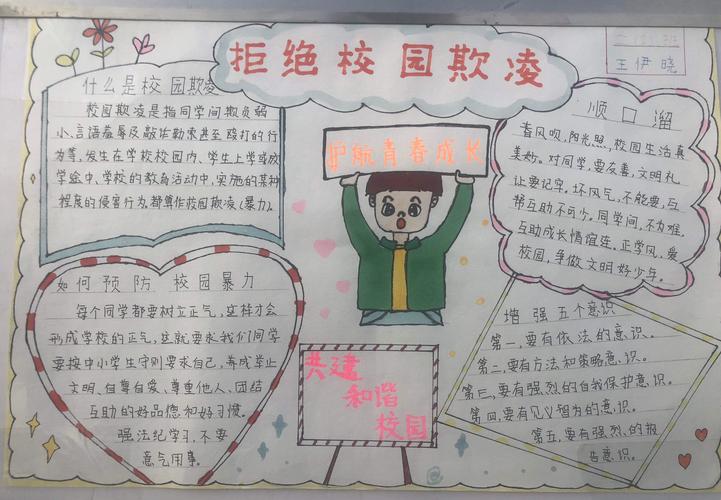 拒绝校园欺凌
王伊晓
什么是校园欺凌
校园欺凌是指同学间欺负弱
小、言语羞辱及敲诈勒索甚至殴打的行
为等,发生在学校校园内、学生上学或放
学途中、学校的教育活动中,实施的某种
程度的侵害行为都算作校园欺凌(暴力)。
护航青春成长
顺口溜
春风吹,阳光照,校园生活真
美妙。对同学,要友善,文明礼
让要记牢。坏风气,不能要,互
帮互助不可少。同学间,不为难,
互助成长情谊连。正学风,爱
校园,争做文明好少年。
如何预防校园暴力
每个同学都要树立正气,这样才会
形成学校的正气,这就要求我们同学
要按中小学生守则要求自己,养成举止
文明、自尊自爱、尊重他人、团结
互助的好品德和好习惯。
强法纪学习,不要
意气用事。
共建
和谐
校园
增强五个意识
第一,要有依法的意识。
第二,要有方法和策略意识。
第三,要有强烈的自我保护意识。
第四,要有见义智为的意识。
第五,要有强烈的报
告意识。